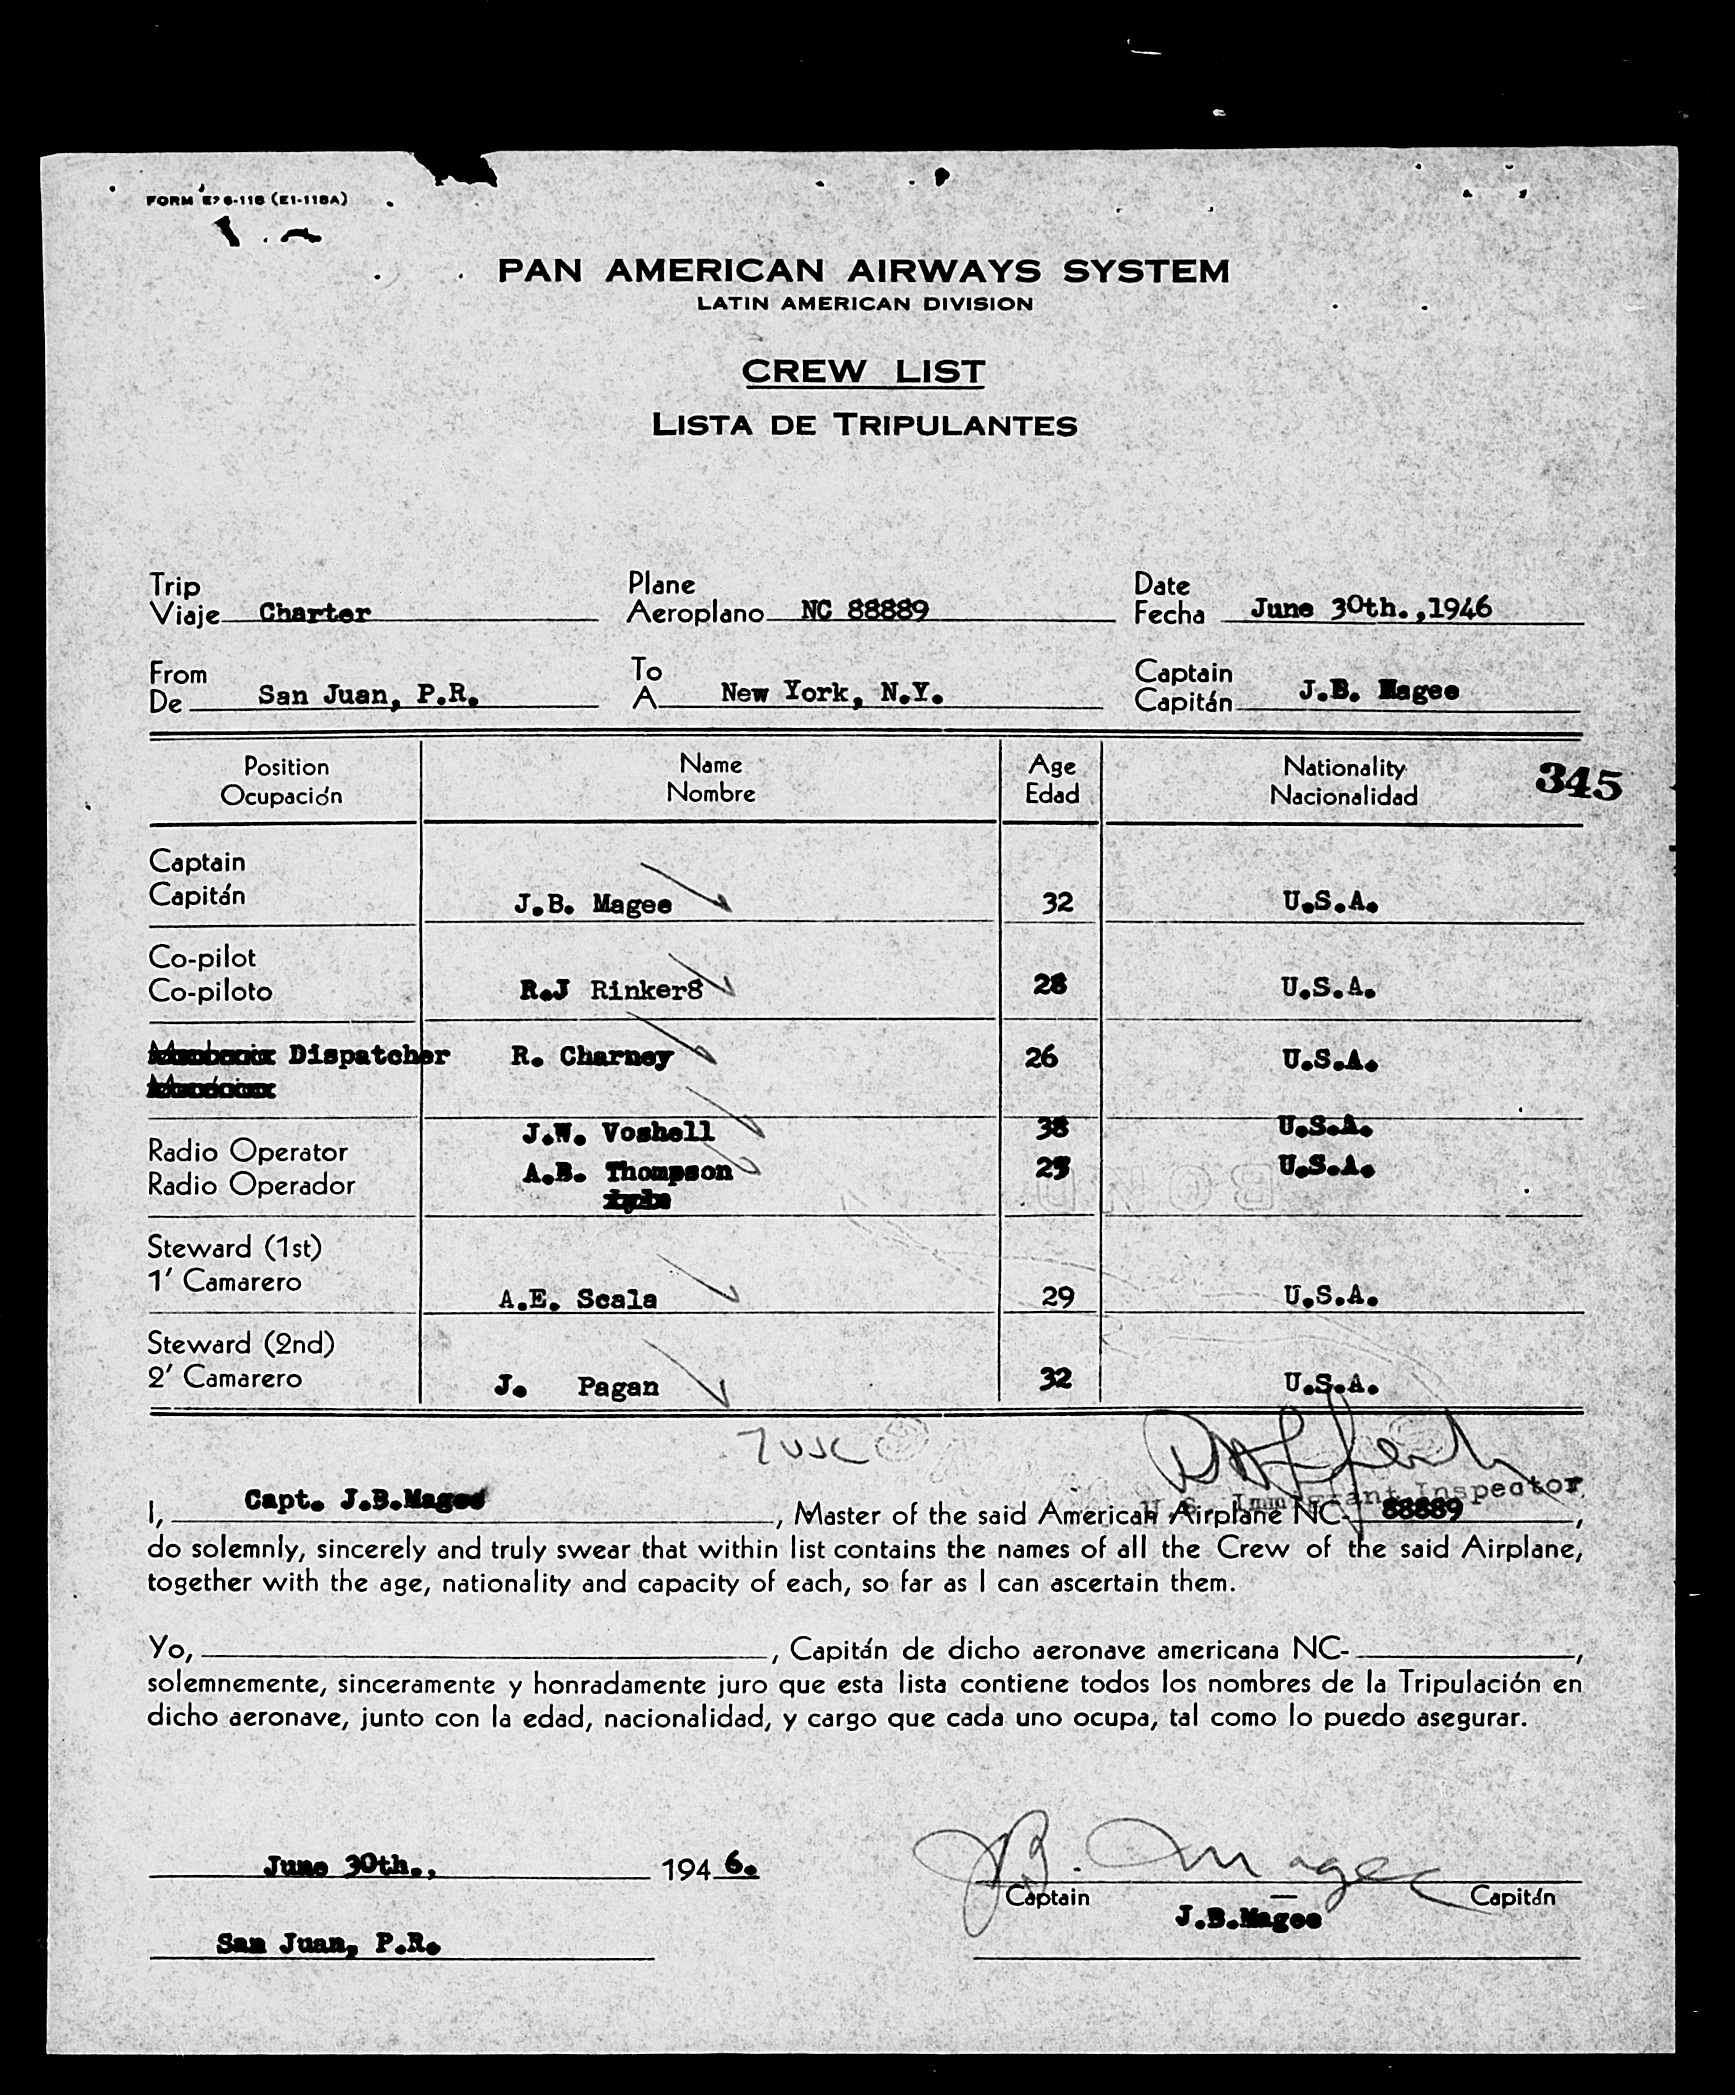 FORM E76-118 (E1-118A)
PAN AMERICAN AIRWAYS SYSTEM
LATIN AMERICAN DIVISION
CREW LIST
LISTA DE TRIPULANTES
Trip Plane Date
Viaje Charter Aeroplano NC 88889 Fecha June 30th.,1946
From To Captain
De San Juan, P.R. A New York, N.Y. Capitán J.B. Magee
Position Name Age Nationality 345
Ocupación Nombre Edad Nacionalidad
Captain
Capitán J.B. Magee 32 U.S.A.
Co-pilot
Co-piloto R.J Rinker8 28 U.S.A.
Dispatcher R. Charney 26 U.S.A.
J.W. Voshell 38 U.S.A.
Radio Operator
A.B. Thompson U.S.A.
Radio Operador
Steward (1st)
1' Camarero A.E. Scala 29 U.S.A.
Steward (2nd)
2' Camarero J. Pagan 32 U.S.A.
7 USC
U.S. Immigrant Inspector
I, Capt. J.B.Magee, Master of the said American Airplane NC- 88889,
do solemnly, sincerely and truly swear that within list contains the names of all the Crew of the said Airplane,
together with the age, nationality and capacity of each, so far as I can ascertain them.
Yo, , Capitán de dicho aeronave americana NC- ,
solemnemente, sinceramente y honradamente juro que esta lista contiene todos los nombres de la Tripulación en
dicho aeronave, junto con la edad, nacionalidad, y cargo que cada uno ocupa, tal como lo puedo asegurar.
June 30th., 194 6. J.B. Magee
Captain Capitán
J.B.Magee
San Juan, P.R.